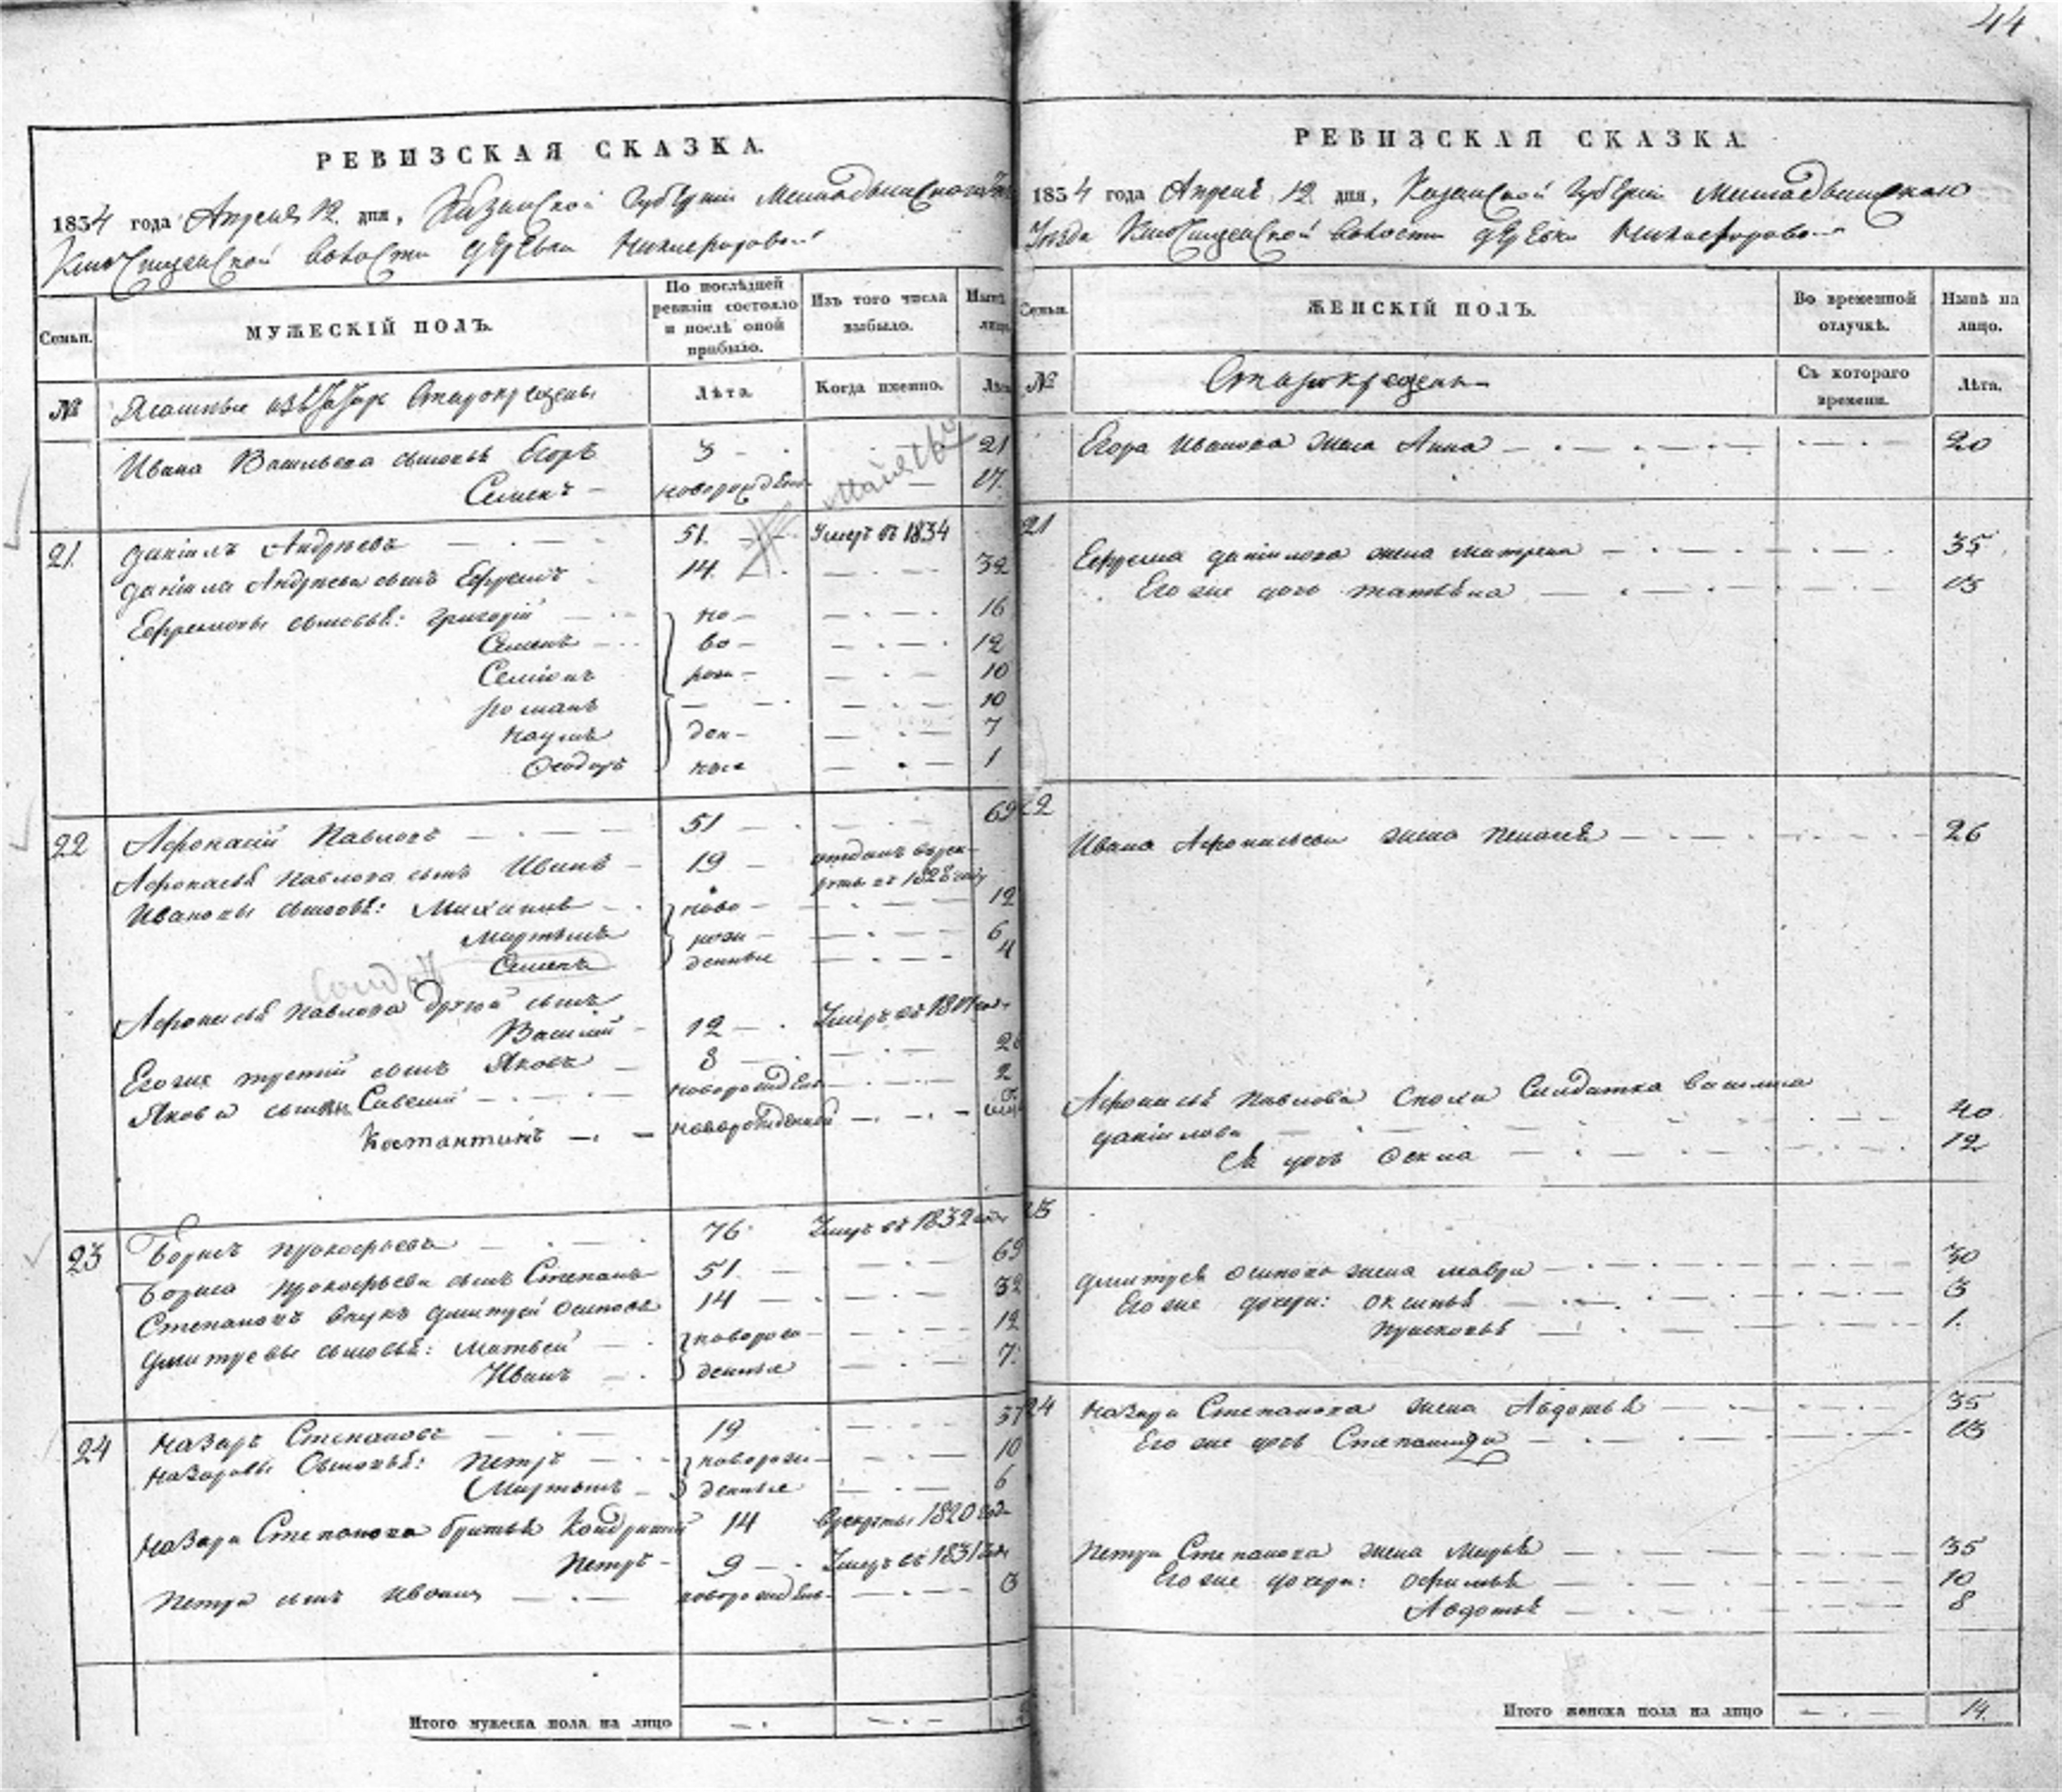 44
РЕВИЗСКАЯ СКАЗКА.
1834 года Апреля 12 дня, Казанской Губернии
волости деревни Никифоровой
Семьи.
МУЖЕСКІЙ ПОЛЪ.
По послѣдней ревизіи состояло и послѣ оной прибыло.
Изъ того числа выбыло.
Нынѣ лицо
№
Ясашные изъ Татаръ Старокрещены
Лѣта.
Когда именно.
Лѣта
Ивана Васильева сыновья Егоръ 3 21
Семенъ новорожден 17
21. Данiилъ Андреевъ 51. Умеръ въ 1834
Данiила Андреева сынъ Ефремъ 14. 32
Ефремовы сыновья: Григорiй но- 16
Семенъ во- 12
Семiонъ рож- 10
Романъ 10
Наумъ ден- 7
Ѳеодоръ ные 1
22 Афонасiй Павловъ 51 69
Афонасья Павлова сынъ Иванъ 19 отданъ въ рек-
руты въ 1828 году
Ивановы сыновья: ново 12
Мартынъ рож- 6
Семенъ денные 4
Афонасья Павлова другой сынъ
Василiй 12 Умеръ въ
Его же третiй сынъ Яковъ 8 26
Якова сыны Савелiй новорожден 2
Костантинъ новорожденной
23 Борисъ Прокофьевъ 76 Умеръ въ 1832 году
Бориса Прокофьева сынъ Степанъ 51. 69
Степановъ внукъ Дмитрей Осиповъ 14 32
Дмитревы сыновья: Матвей новорож- 12
Иванъ денные 7
24 Назаръ Степановъ 19 37
Назаровы Сыновья: Петръ новорож- 10
Мартынъ денные 6
Назара Степанова братья Кондратей 14 В рекруты 1820 года
Петръ 9 Умеръ въ 1831 году
Петра сынъ новорожден 3
Итого мужеска пола на лицо
РЕВИЗСКАЯ СКАЗКА.
1834 года Апреля 12 дня, Казанской Губернiи
Уезда волости деревни Никифоровой
Семьи.
ЖЕНСКІЙ ПОЛЪ.
Во временной отлучкѣ.
Нынѣ на лицо.
№
Старокрещены
Съ котораго времени.
Лѣта.
Егора Иванова жена Анна 20
21
Ефрема Данiилова жена Матрена 35
Его же дочь Татьяна 13
22
Ивана Афонасьева жена Пелагея 26
Афонасья Павлова сноха Салдатка Василиса
Данiилова 40
Ея дочь Фекла 12
23
Дмитрея Осипова жена Мавра 30
Его же дочери: Оксинья 3
Прасковья 1.
24 Назара Степанова жена Авдотья 35
Его же дочь Степанида 13
Петра Степанова жена Марья 35
Его же дочери: Офимья 10
Авдотья 8
Итого женска пола на лицо 14.